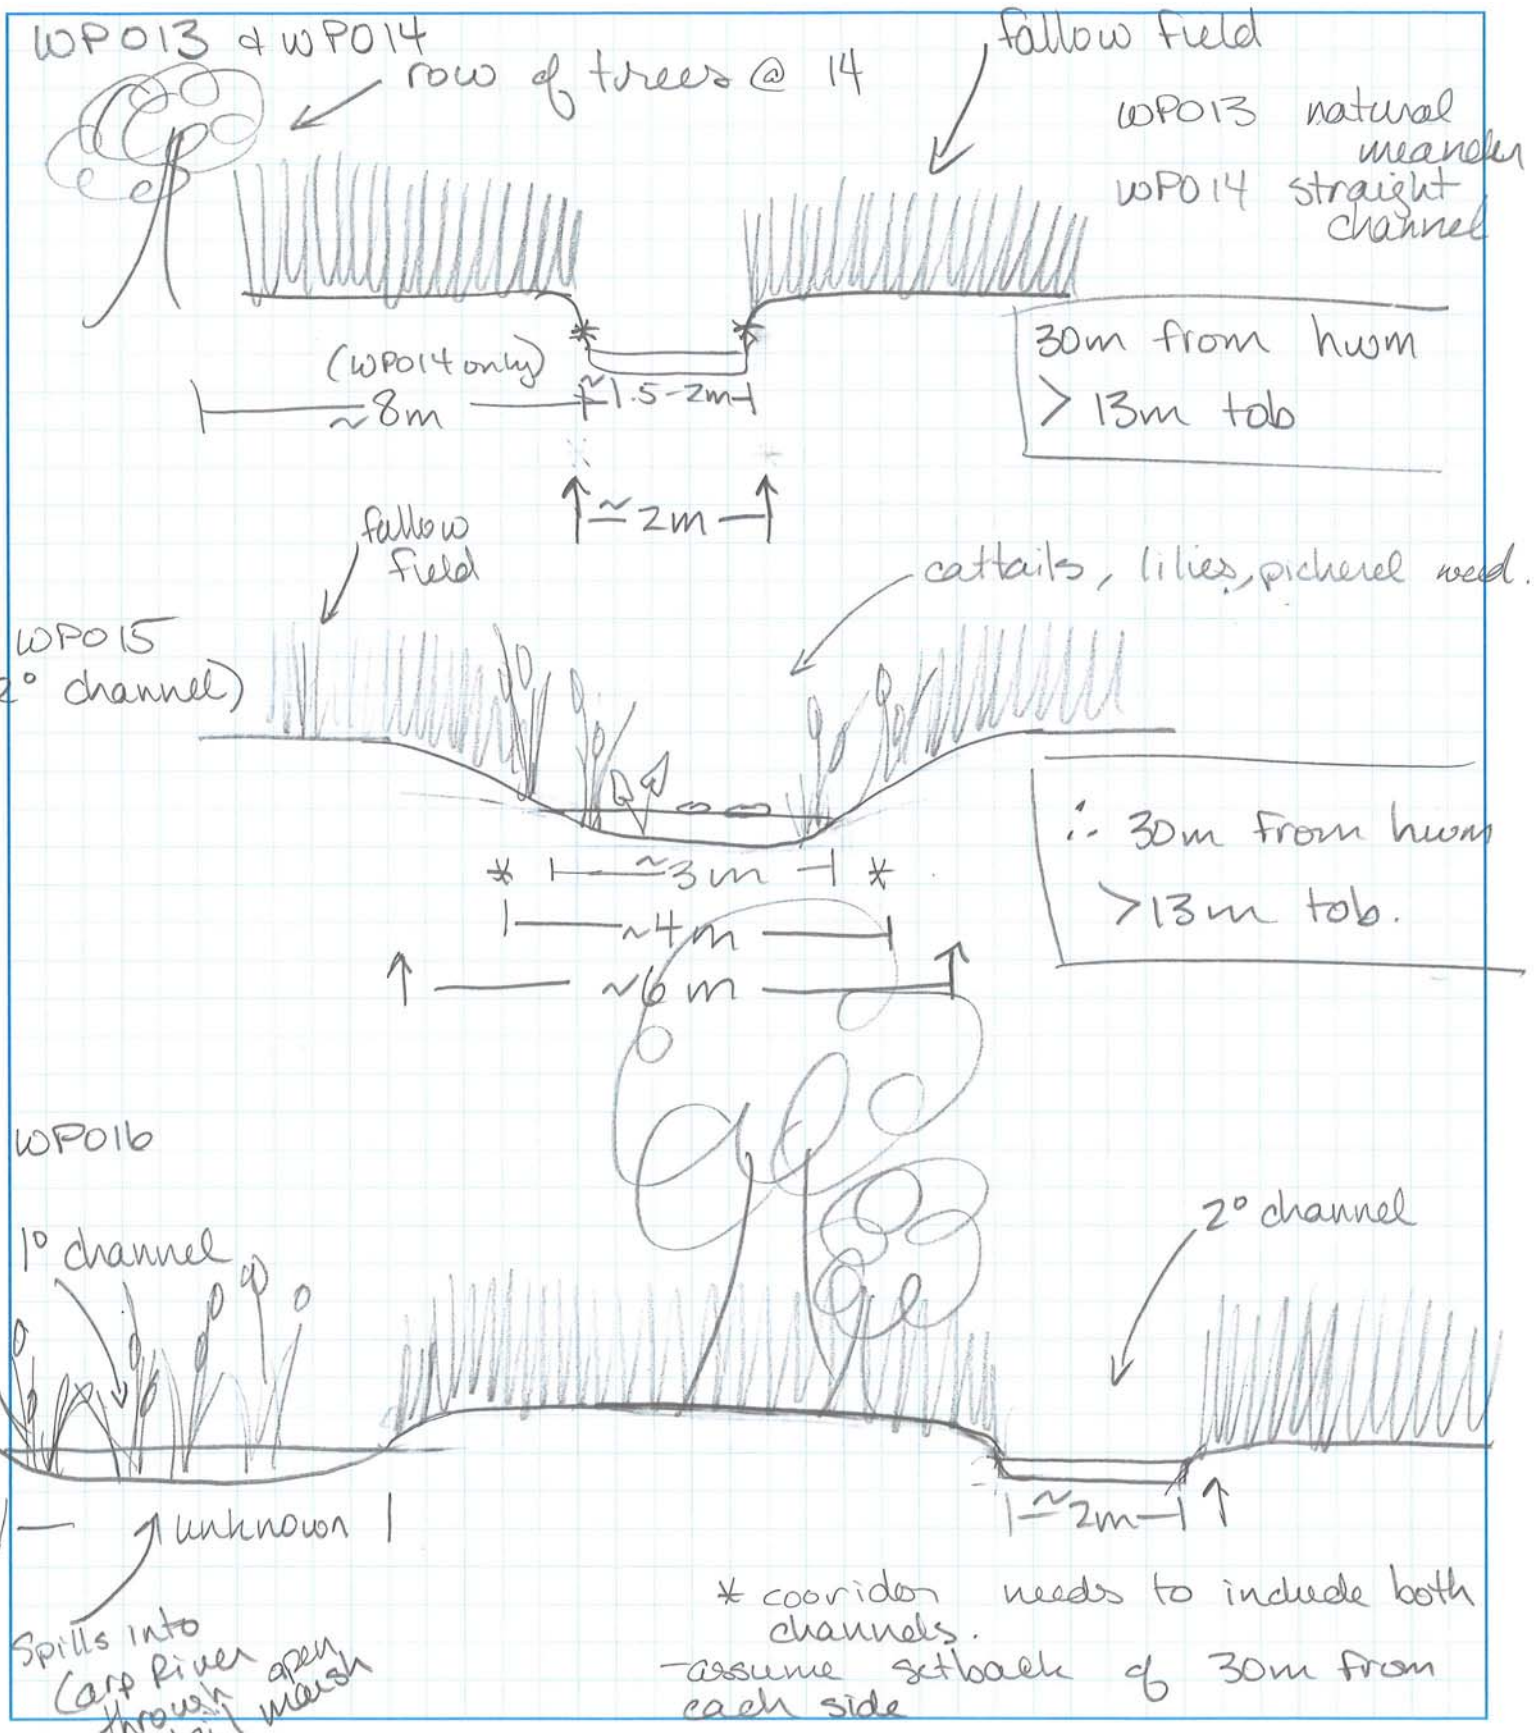 WP013 & WP014
row of trees @ 14
fallow field
WP013 natural
meander
WP014 straight
channel
(WP014 only)
~8m
≈1.5-2m
30m from hwm
> 13m tob
≈2m
fallow
field
cattails, lilies, picherel weed.
WP015
2° channel)
≈3m
* *
~4m
~6m
∴ 30m from hwm
>13m tob.
WP016
1° channel
2° channel
unknown
≈2m
Spills into
Carp River
through open
marsh
* cooridor needs to include both
channels.
- assume setback of 30m from
each side